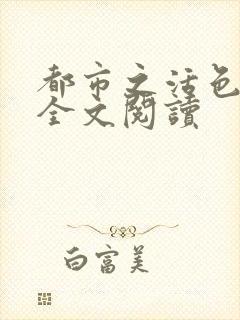 都市之活色
全文閱讀
白富美